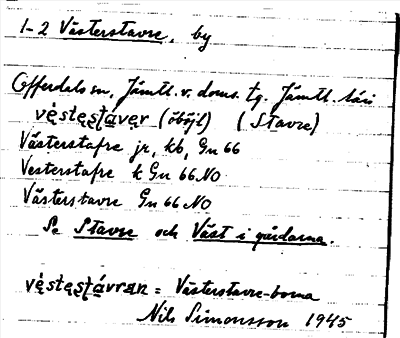 1-2 Västerstavre, by
Offerdals sn, Jämtl. v. doms. tg. Jämtl. län
vèstęstáver (öböjl) (Stavre)
Västerstafre jr, kb, Gn 66
Vesterstafre k Gn 66 NO
Västerstavre Gn 66 NO
Se Stavre och Väst i gårdarna.
vèstęstávran = Västerstavre-borna
Nils Simonsson 1945